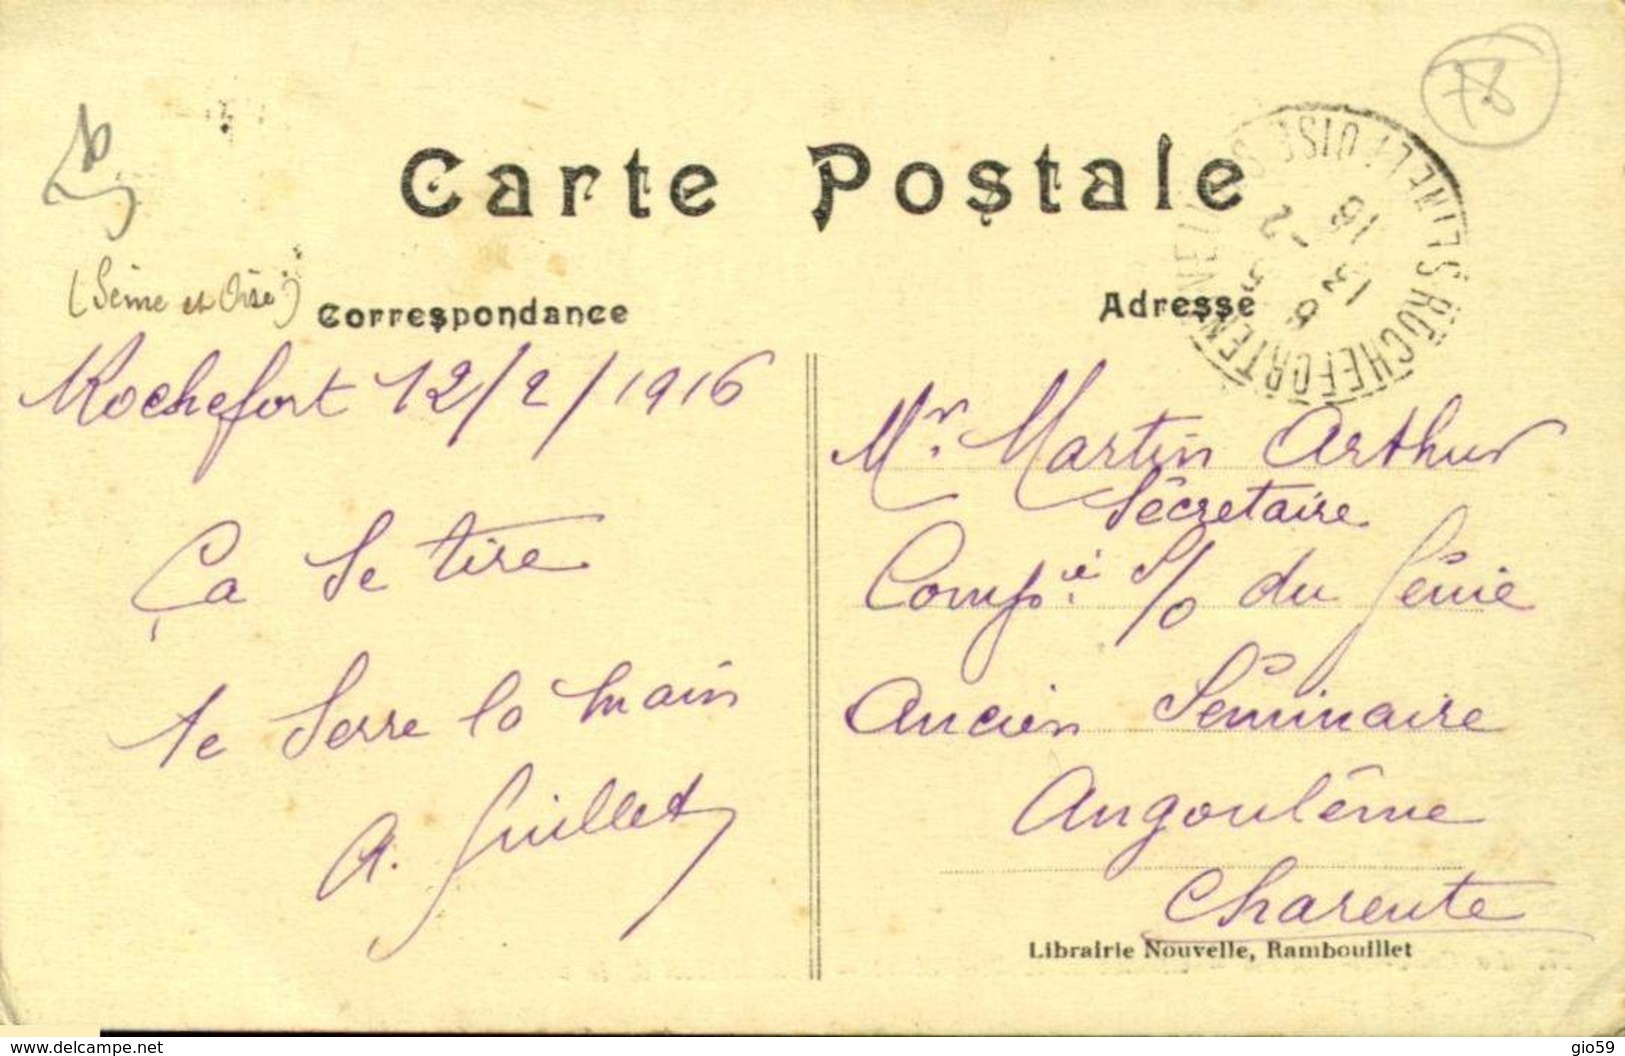 78
Carte Postale
(Seine et Oise)
Correspondance
Rochefort 12/2/1916
Ça se tire
te serre la main
A. Guillet
ROCHEFORT EN YVELINES SEINE ET OISE
Adresse
Mr. Martin Arthur
Sécretaire
Comp.ie S/O du Génie
Ancien Séminaire
Angoulême
Charente
Librairie Nouvelle, Rambouillet
www.delcampe.net
gio59